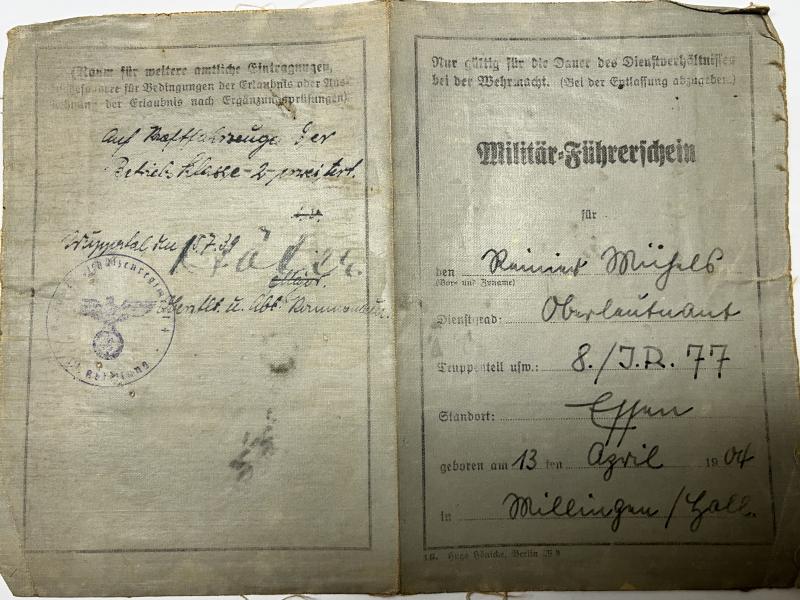 (Raum für weitere amtliche Eintragungen,
insbesondere für Bedingungen der Erlaubnis oder Aus-
dehnung der Erlaubnis nach Ergänzungsprüfungen)
Auf Kraftfahrzeuge der
Betriebsklasse -2-
Wuppertal den 15.7.39
Major.
u. Abt. Kommandeur.
Nur gültig für die Dauer des Dienstverhältnisses
bei der Wehrmacht. (Bei der Entlassung abzugeben.)
Militär-Führerschein
für
den Reinier Michels
(Vor- und Zuname)
Dienstgrad: Oberleutnant
Truppenteil usw.: 8./I.R. 77
Standort: Essen
geboren am 13 ten April 1904
in Millingen/Holl.
Hugo Hönicke, Berlin